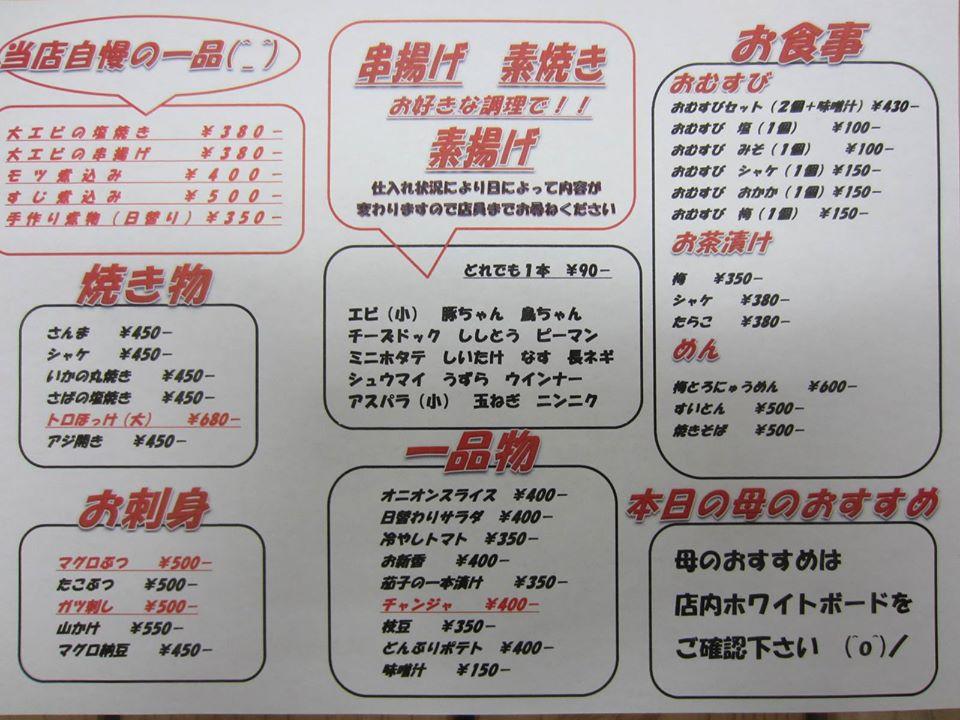 当店自慢の一品(^_^)
大エビの塩焼き ¥380-
大エビの串揚げ ¥380-
モツ煮込み ¥400-
すじ煮込み ¥500-
手作り煮物(日替り) ¥350-
焼き物
さんま ¥450-
シャケ ¥450-
いかの丸焼き ¥450-
さばの塩焼き ¥450-
トロほっけ(大) ¥680-
アジ開き ¥450-
お刺身
マグロぶつ ¥500-
たこぶつ ¥500-
ガツ刺し ¥500-
山かけ ¥550-
マグロ納豆 ¥450-
串揚げ 素焼き
お好きな調理で!!
素揚げ
仕入れ状況により日によって内容が
変わりますので店員までお尋ねください
どれでも1本 ¥90-
エビ(小) 豚ちゃん 鳥ちゃん
チーズドック ししとう ピーマン
ミニホタテ しいたけ なす 長ネギ
シュウマイ うずら ウインナー
アスパラ(小) 玉ねぎ ニンニク
一品物
オニオンスライス ¥400-
日替わりサラダ ¥400-
冷やしトマト ¥350-
お新香 ¥400-
茄子の一本漬け ¥350-
チャンジャ ¥400-
枝豆 ¥350-
どんぶりポテト ¥400-
味噌汁 ¥150-
お食事
おむすび
おむすびセット(2個+味噌汁) ¥430-
おむすび 塩(1個) ¥100-
おむすび みそ(1個) ¥100-
おむすび シャケ(1個) ¥150-
おむすび おかか(1個) ¥150-
おむすび 梅(1個) ¥150-
お茶漬け
梅 ¥350-
シャケ ¥380-
たらこ ¥380-
めん
梅とろにゅうめん ¥600-
すいとん ¥500-
焼きそば ¥500-
本日の母のおすすめ
母のおすすめは
店内ホワイトボードを
ご確認下さい (^o^)/